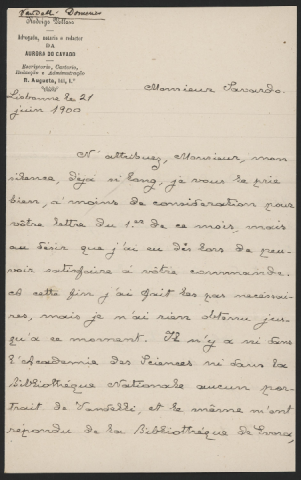 Vandelli Domenico
Rodrigo Velloso
Advogado, notario e redactor
DA
AURORA DO CAVADO
Escriptorio, Cartorio,
Redacção e Administração
R. Augusta,
Lisbonne le 21
juin 1900
Monsieur Savardo.
N'attribuez, Monsieur, mon
silence, déjà si long, je vous le prie
bien, à moins de consideration pour
vôtre lettre du 1.er de ce mois, mais
au désir que j'ai eu dês lors de pou-
voir satisfaire à vôtre commande.
À cette fin j'ai fait les pas necessai-
res, mais je n'ai rien obtenu jus-
qu'a ce moment. Il n'y a ni dans
l'Academie des Sciences ni dans la
Bibliothéque Nationale aucun por-
trait de Vandelli, et le même m'ont
répondu de la Bibliothéque de Evora,